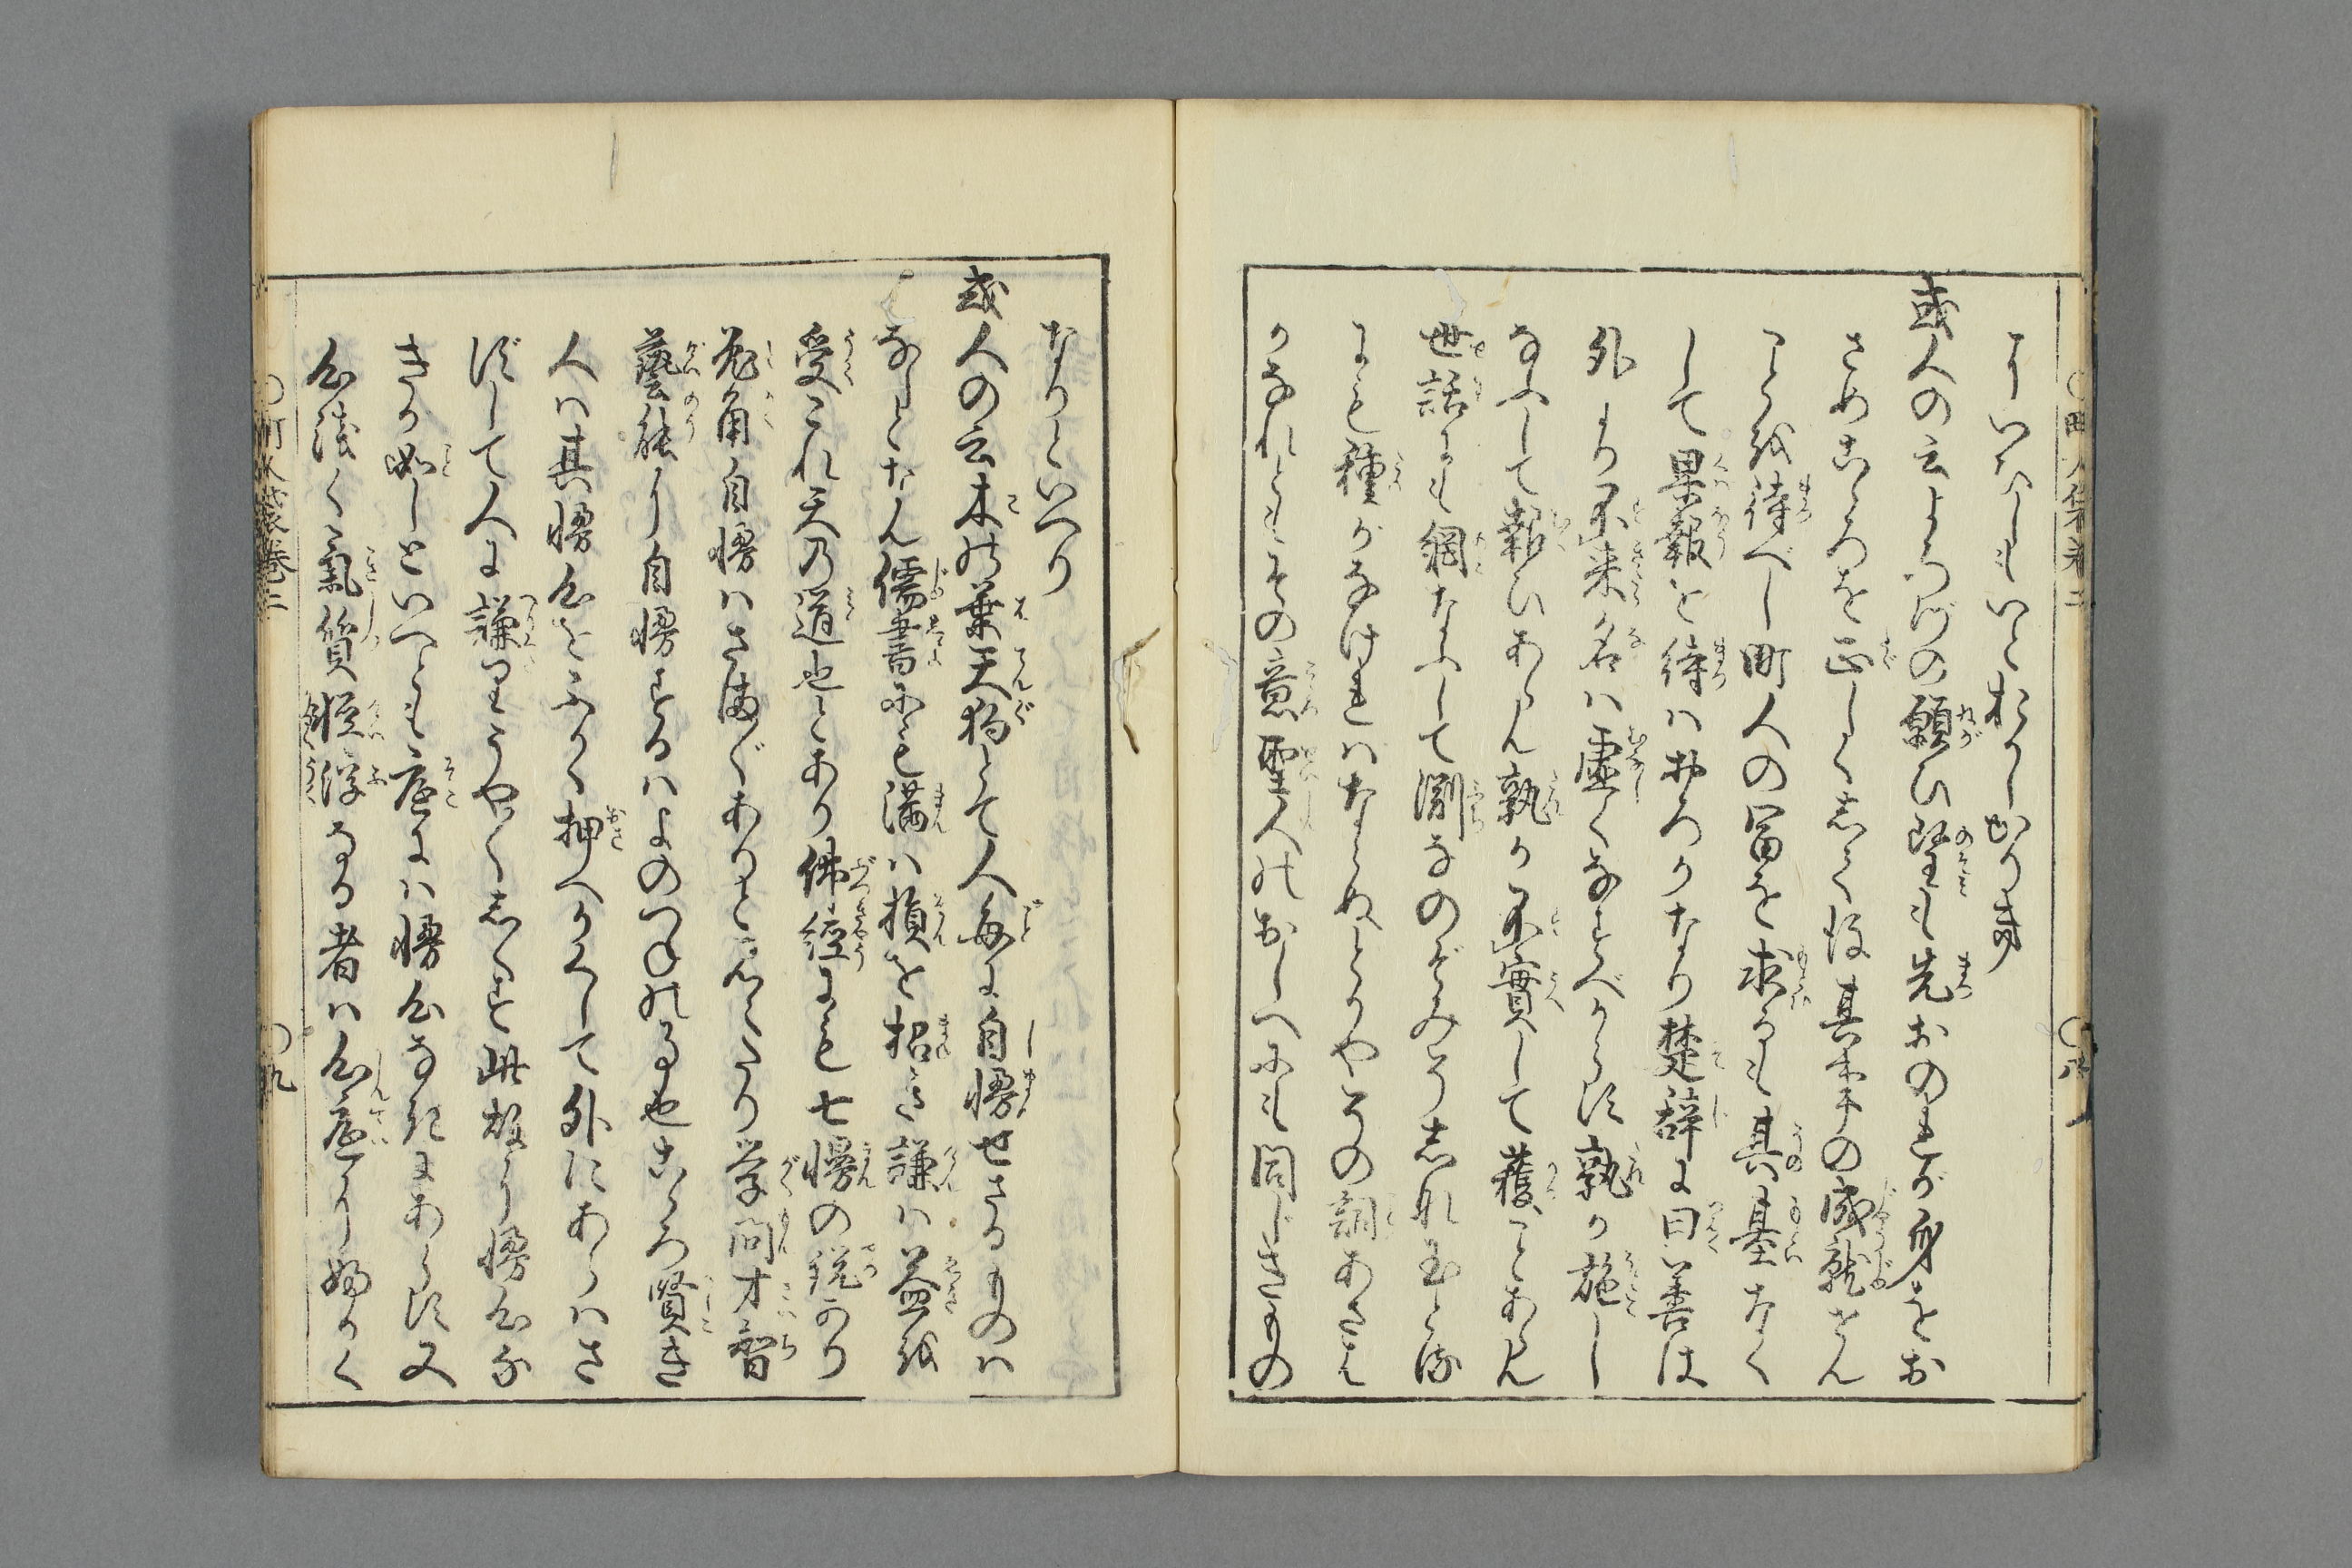 或人の云よろづの願ひ望も先おのれが身をお
さめこゝろを正しくしてく後其本の成就せん
ことを待べし町人の冨を求るも其基なく
して果報を待ハおろかなり楚辞に曰善は
外より不来名ハ虚く なすべからず孰か施し
なふして報ひあらん孰か不實して穫ことあらん
世話にも網なふして淵なのぞみそ
にも種がなけれハならぬとかやその詞あさは
かなれどもその意聖人のおしへにも同じきもの
なりといへり
或人の云木の葉天狗とて人毎に自慢せざるものハ
なしとなん儒書にも満ハ損を招き謙ハ益を
受これ天の道也とあり佛經にも七慢の説あり
兎角自慢ハさま〲ありとしるしたり学問才智
藝能より自慢するハよのつねの事也こゝろ賢き
人ハ其慢心をふかく押へかくして外にあらハさ
ずして人に謙りうやくしくす此故に慢心な
きか如しといへども底にハ慢心なきにあらず又
心淺く氣質軽浮なる者ハ心底より好かく
町人袋巻二
九